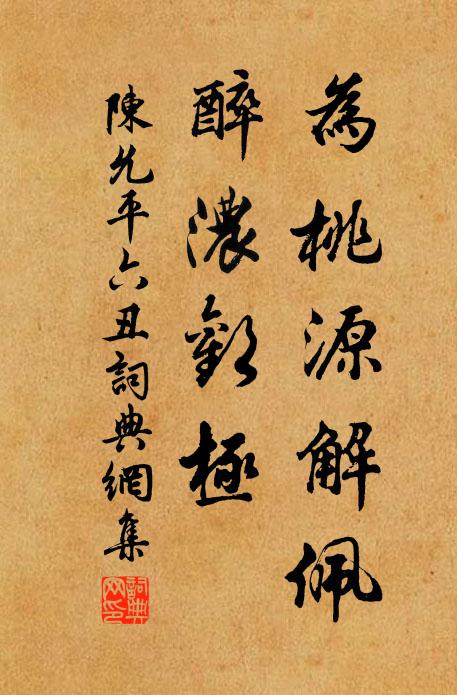 為桃源解佩
醉濃歡極
陳允平六丑詞典網集
詞典網印